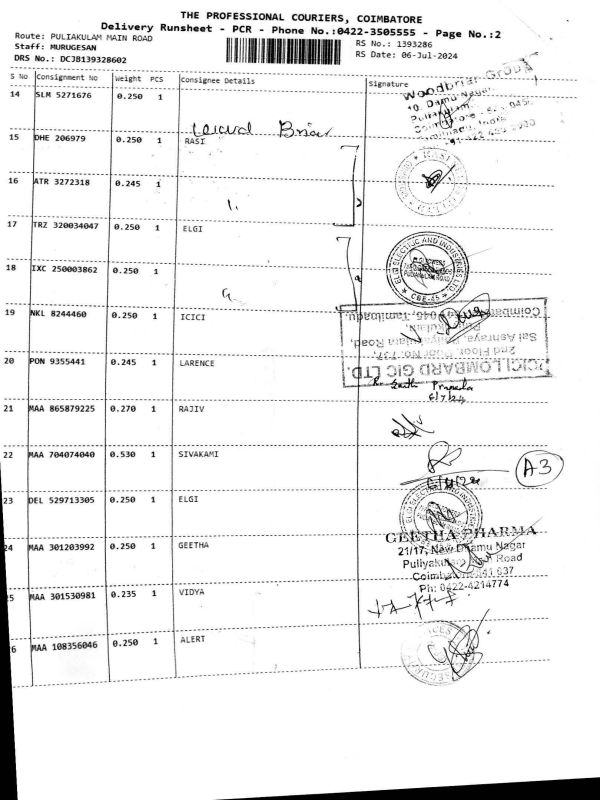 THE PROFESSIONAL COURIERS, COIMBATORE
Delivery Runsheet - PCR - Phone No.:0422-3505555 - Page No.:2
Route: PULIAKULAM MAIN ROAD
Staff: MURUGESAN
DRS No.: DCJB139328602
RS No.: 1393286
RS Date: 06-Jul-2024
S No Consignment No Weight PCS Consignee Details Signature
14 SLM 5271676 0.250 1
Briar
Woodbriar Group
15 DHE 206979 0.250 1 RASI
16 ATR 3272318 0.245 1
17 TRZ 320034047 0.250 1 ELGI
ELGI ELECTRIC AND INDUSTRIES LTD
CBE-45
18 IXC 250003862 0.250 1
19 NKL 8244460 0.250 1 ICICI
ICICI LOMBARD GIC LTD.
2nd Floor, Door No. 737,
Sai Ashraya, Puliyakulam Road,
Coimbatore - 641 045, Tamilnadu.
20 PON 9355441 0.245 1 LARENCE
6/7/24
21 MAA 865879225 0.270 1 RAJIV
22 MAA 704074040 0.530 1 SIVAKAMI
A3
23 DEL 529713305 0.250 1 ELGI
24 MAA 301203992 0.250 1 GEETHA
GEETHA PHARMA
21/17, New Dhamu Nagar
Puliyakulam Main Road
Coimbatore-641 037
Ph: 0422-4214774
25 MAA 301530981 0.235 1 VIDYA
26 MAA 108356046 0.250 1 ALERT